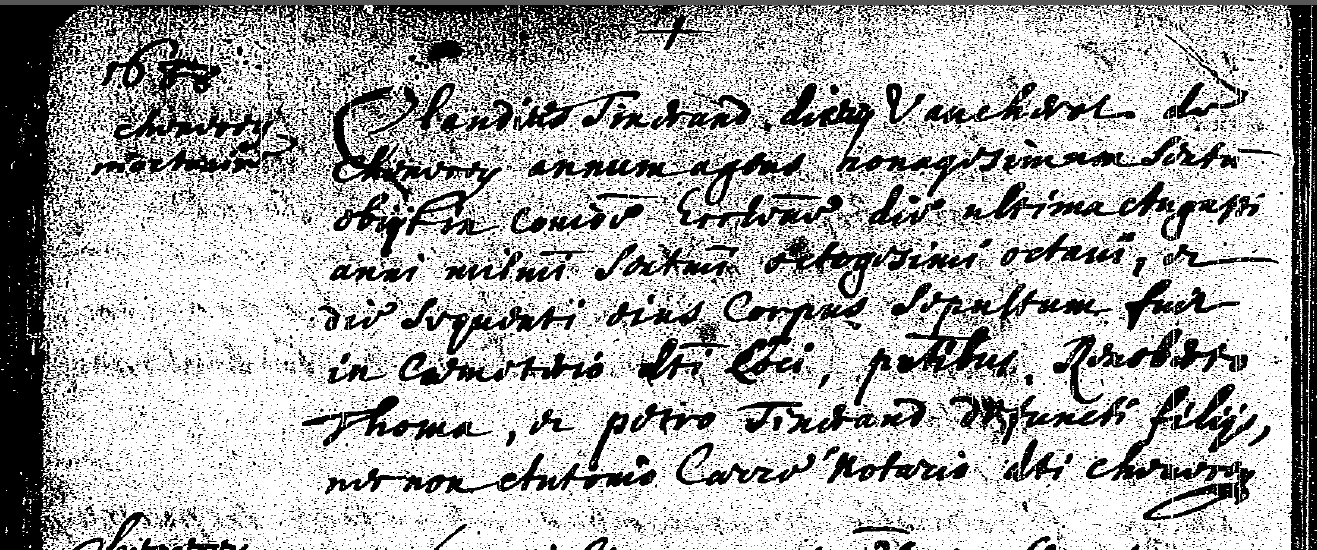 1688
chevroz
mortuus
Claudius Tinerand, dictus Vancheret de
Chevroz annum agens nonagesimum sextu
obijt in comōe Ecclesiae die ultima Augusti
anni millmi sextmi octogesimi octaui, et
die sequenti eius Corpus sepultum fuit
in Cemeterio dti loci, pntibus, Renoberto
Thoma, et petro Tinerand defuncti filijs,
nec non Antonio Carre Notario dti chevroz